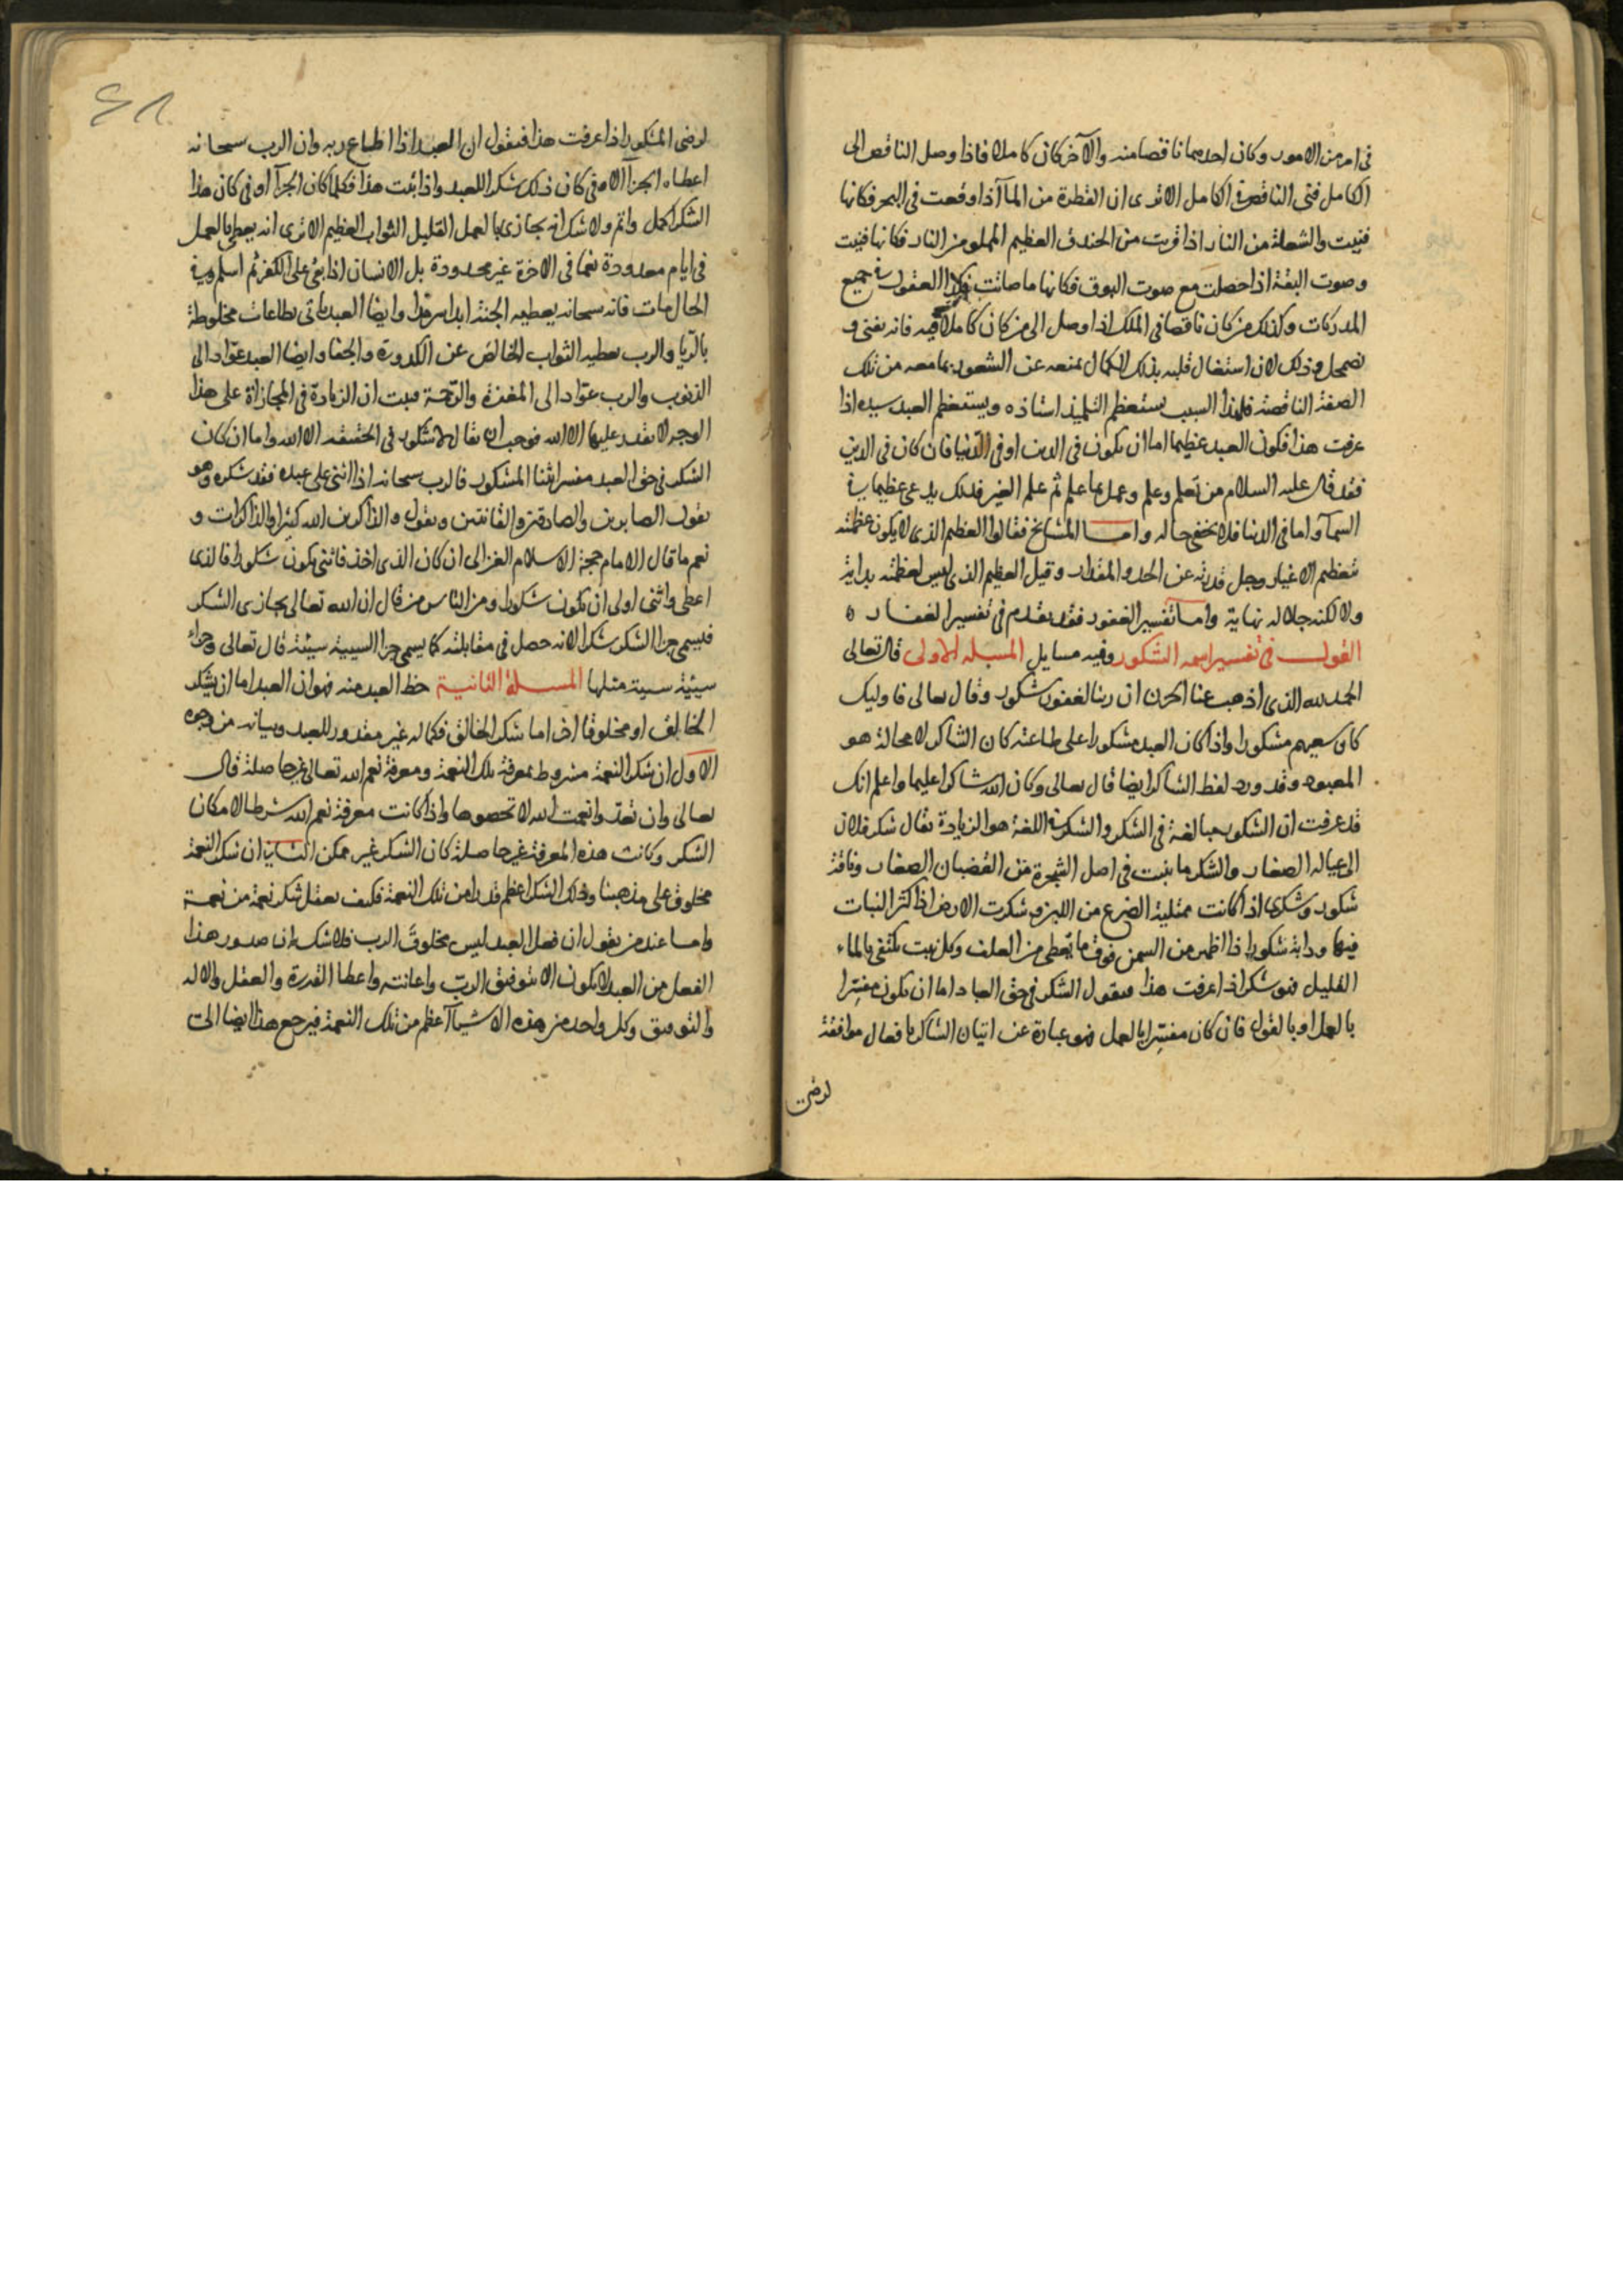 فى امر من الامور وكان احدهما ناقصا منه والآخر كان كاملا فاذا وصل الناقص الى
الكامل فنى الناقص فى الكامل الا ترى ان القطرة من المآ اذا وقعت فى البحر فكانها
فنيت والشعلة من النار اذا قربت من الخندق العظيم المملو من النار فكانها فنيت
وصوت البقة اذا حصلت مع صوت البوق فكانها ما صاتت فكذا القول فى جميع
المدركات وكذلك من كان ناقصا فى الملك اذا وصل الى من كان كاملا فيه فانه يفنى و
يضمحل وذلك لان اشتغال قلبه بذلك الكمال يمنعه عن الشعور بما معه من تلك
الصفة الناقصة فلهذا السبب يستعظم التلميذ استاذه ويستعظم العبد سيده اذا
عرفت هذا فكون العبد عظيما اما ان يكون فى الدين او فى الدنيا فان كان فى الدين
فقد قال عليه السلام من تعلم وعلم وعمل بما علم ثم علم الغير فذلك يدعى عظيما فى
السمآ واما فى الدنيا فلا يخفى حاله واما المشايخ فقالوا العظيم الذى لا يكون عظمته
بتعظيم الاغيار وجل قدرته عن الحد والمقدار وقيل العظيم الذى ليس لعظمته بداية
ولا لكنه جلاله نهاية واما تفسير الغفور فقد تقدم فى تفسير الغفار ه
القول فى تفسير اسمه الشكور وفيه مسايل المسله الاولى قال تعالى
الحمد لله الذى اذهب عنا الحزن ان ربنا لغفور شكور وقال تعالى فاوليك
كان سعيهم مشكورا واذا كان العبد مشكورا على طاعته كان الشاكر لا محالة هو
المعبود وقد ورد لفظ الشاكر ايضا قال تعالى وكان الله شاكرا عليما واعلم انك
قد عرفت ان الشكور مبالغة فى الشكر والشكر فى اللغة هو الزيادة يقال شكر فلان
الى عياله الصغار والشكر ما ينبت فى اصل الشجرة من القضبان الصغار وناقة
شكور وشكرى اذا كانت ممتلية الضرع من اللبن وشكرت الارض اذا كثر النبات
فيها ودابة شكور اذا اظهر من السمن فوق ما تعطى من العلف وكل نبت يكتفى بالماء
القليل فهو شكر اذا عرفت هذا فنقول الشكر فى حق العباد اما ان يكون مفسرا
بالعمل او بالقول فان كان مفسرا بالعمل فهو عبارة عن اتيان الشاكر بافعال موافقة
لرضى
لرضى المشكور اذا عرفت هذا فنقول ان العبد اذا اطاع ربه وان الرب سبحانه
اعطاه الجزآ الاوفى كان ذلك شكرا للعبد واذا ثبت هذا فكلما كان الجزآ اوفى كان هذا
الشكر اكمل واتم ولا شك انه يجازى بالعمل القليل الثواب العظيم الا ترى انه يعطى بالعمل
فى ايام معدودة نعما فى الاخرة غير محدودة بل الانسان اذا بقى على الكفر ثم اسلم وفى
الحال مات فانه سبحانه يعطيه الجنة ابدا سرمدا وايضا العبد ياتى بطاعات مخلوطة
بالريا والرب يعطيه الثواب الخالص عن الكدورة والجفا وايضا العبد عواد الى
الذنوب والرب عواد الى المغفرة والرحمة فثبت ان الزيادة فى المجازاة على هذا
الوجه لا يقدر عليها الا الله فوجب ان يقال لا شكور فى الحقيقه الا الله واما ان كان
الشكر فى حق العبد مفسرا بثنا المشكور فالرب سبحانه اذا اثنى على عبده فقد شكره وهو
يقول الصابرين والصادقين والقانتين ويقول والذاكرين الله كثيرا والذاكرات و
نعم ما قال الامام حجة الاسلام الغزالى ان كان الذى اخذ فاثنى يكون شكورا فالذى
اعطى واثنى اولى ان يكون شكورا ومن الناس من قال ان الله تعالى يجازى الشكر
فيسمى جزا الشكر شكرا لانه حصل فى مقابلته كما يسمى جزا السيية سيئة قال تعالى وجزاء
سيئة سيية مثلها المسلة الثانية حظ العبد منه فهو ان العبد اما ان يشكر
الخالق او مخلوقا اخر اما شكر الخالق فكماله غير مقدور للعبد وبيانه من وجوه
الاول ان شكر النعمة مشروط بمعرفة تلك النعمة ومعرفة نعم الله تعالى غير حاصلة قال
تعالى وان تعدوا نعمت الله لا تحصوها واذا كانت معرفة نعم الله شرطا لامكان
الشكر وكانت هذه المعرفة غير حاصلة كان الشكر غير ممكن الثانى ان شكر النعمة
مخلوق على مذهبنا وذلك الشكر اعظم قدرا من تلك النعمة فكيف يعقل شكر نعمة من نعمة
واما عند من يقول ان فعل العبد ليس مخلوق الرب فلا شك ان صدور هذا
الفعل من العبد لا يكون الا بتوفيق الرب واعانته واعطا القدرة والعقل والاله
والتوفيق وكل واحد من هذه الاشيآ اعظم من تلك النعمة فيرجع هذا ايضا الى